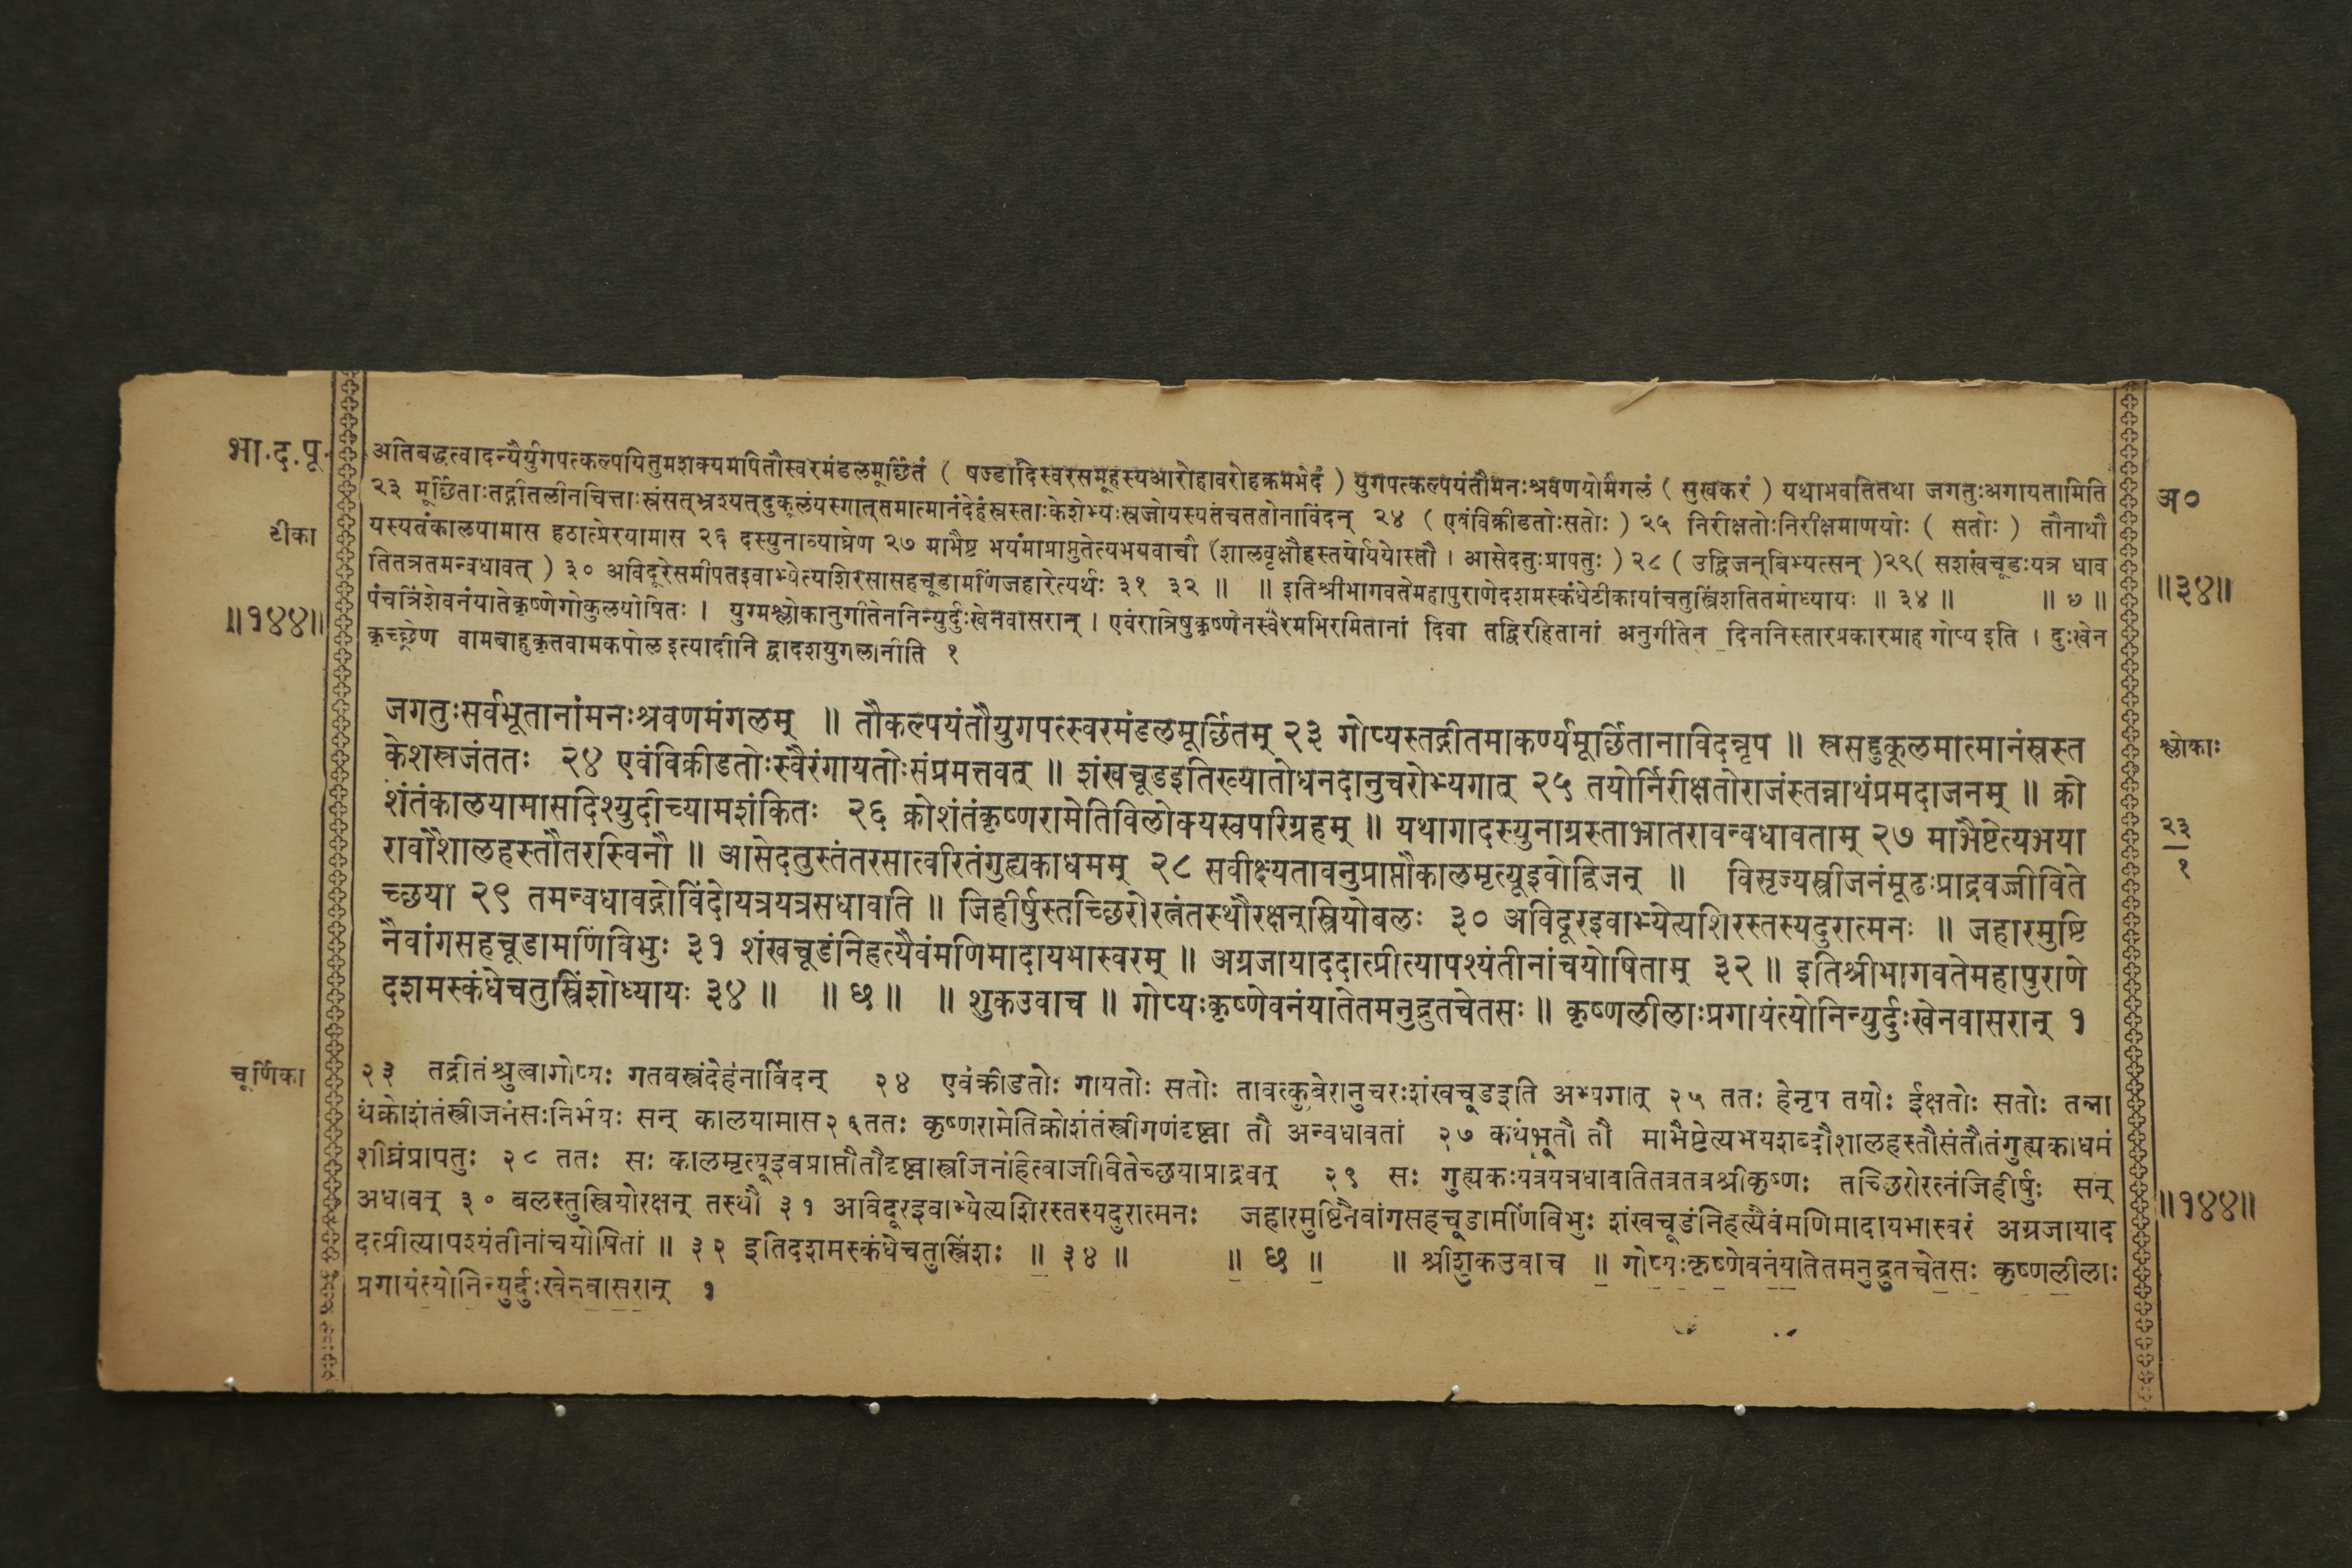 भा.द.पू.
टीका
॥१४४॥
अतिबद्धत्वादन्यैर्युगपत्कल्पयितुमशक्यमपितौस्वरमंडलमूर्छितं ( षड्जादिस्वरसमूहस्यआरोहावरोहक्रमभेदं ) युगपत्कल्पयंतौमनःश्रवणयोर्मंगलं ( सुखकरं ) यथाभवतितथा जगतुःअगायतामिति
२३ मूर्छिताःतद्गीतलीनचित्ताःस्रंसत्भ्रश्यत्दुकूलंयस्गात्तमात्मानंदेहंस्रस्ताःकेशेभ्यःस्रजोयस्यतंचततोनाविंदन् २४ ( एवंविक्रीडतोःसतोः ) २५ निरीक्षतोःनिरीक्षमाणयोः ( सतोः ) तौनाथौ
यस्यतंकालयामास हठात्प्रेरयामास २६ दस्युनाव्याघ्रेण २७ माभैष्ट भयंमाप्राप्नुतेत्यभयवाचौ (शालवृक्षौहस्तयोर्ययोस्तौ । आसेदतुःप्रापतुः ) २८ ( उद्विजन्बिभ्यत्सन् )२९( सशंखचूडःयत्र धाव
तितत्रतमन्वधावत् ) ३० अविदूरेसमीपतइवाभ्येत्यशिरसासहचूडामणिंजहारेत्यर्थः ३१ ३२ ॥ ॥ इतिश्रीभागवतेमहापुराणेदशमस्कंधेटीकायांचतुस्त्रिंशतितमोध्यायः ॥ ३४ ॥ ॥ ७ ॥
पंचत्रिंशेवनंयातेकृष्णेगोकुलयोषितः । युग्मश्लोकानुगीतेननिन्युर्दुःखेनवासरान् । एवंरात्रिषुकृष्णेनस्वैरमभिरमितानां दिवा तद्विरहितानां अनुगीतेन दिननिस्तारप्रकारमाह गोप्य इति । दुःखेन
कृच्छ्रेण वामबाहुकृतवामकपोल इत्यादीनि द्वादशयुगलानीति १
अ०
॥३४॥
जगतुःसर्वभूतानांमनःश्रवणमंगलम् ॥ तौकल्पयंतौयुगपत्स्वरमंडलमूर्छितम् २३ गोप्यस्तद्गीतमाकर्ण्यमूर्छितानाविदन्नृप ॥ स्रसद्दुकूलमात्मानंस्रस्त
केशस्रजंततः २४ एवंविक्रीडतोःस्वैरंगायतोःसंप्रमत्तवत् ॥ शंखचूडइतिख्यातोधनदानुचरोभ्यगात् २५ तयोर्निरीक्षतोराजंस्तन्नाथंप्रमदाजनम् ॥ क्रो
शंतंकालयामासदिश्युदीच्यामशंकितः २६ क्रोशंतंकृष्णरामेतिविलोक्यस्वपरिग्रहम् ॥ यथागादस्युनाग्रस्ताभ्रातरावन्वधावताम् २७ माभैष्टेत्यभया
रावौशालहस्तौतरस्विनौ ॥ आसेदतुस्तंतरसात्वरितंगुह्यकाधमम् २८ सवीक्ष्यतावनुप्राप्तौकालमृत्यूइवोद्विजन् ॥ विसृज्यस्त्रीजनंमूढःप्राद्रवज्जीविते
च्छया २९ तमन्वधावद्गोविंदोयत्रयत्रसधावति ॥ जिहीर्षुस्तच्छिरोरत्नंतस्थौरक्षन्स्त्रियोबलः ३० अविदूरइवाभ्येत्यशिरस्तस्यदुरात्मनः ॥ जहारमुष्टि
नैवांगसहचूडामणिंविभुः ३१ शंखचूडंनिहत्यैवंमणिमादायभास्वरम् ॥ अग्रजायाददात्प्रीत्यापश्यंतीनांचयोषिताम् ३२ ॥ इतिश्रीभागवतेमहापुराणे
दशमस्कंधेचतुस्त्रिंशोध्यायः ३४ ॥ ॥ छ ॥ ॥ शुकउवाच ॥ गोप्यःकृष्णेवनंयातेतमनुद्रुतचेतसः ॥ कृष्णलीलाःप्रगायंत्योनिन्युर्दुःखेनवासरान् १
श्लोकाः
२३
१
चूर्णिका
२३ तद्गीतंश्रुत्वागोप्यः गतवस्त्रंदेहंनाविंदन् २४ एवंक्रीडतोः गायतोः सतोः तावत्कुबेरानुचरःशंखचूडइति अभ्यगात् २५ ततः हेनृप तयोः ईक्षतोः सतोः तन्ना
थंक्रोशंतंस्त्रीजनंसःनिर्भयः सन् कालयामास२६ततः कृष्णरामेतिक्रोशंतंस्त्रीगणंदृष्ट्वा तौ अन्वधावतां २७ कथंभूतौ तौ माभैष्टेत्यभयशब्दौशालहस्तौसंतौतंगुह्यकाधमं
शीघ्रंप्रापतुः २८ ततः सः कालमृत्यूइवप्राप्तौतौदृष्ट्वास्त्रीजनांहित्वाजीवितेच्छयाप्राद्रवत् २९ सः गुह्यकःयत्रयत्रधावतितत्रतत्रश्रीकृष्णः तच्छिरोरत्नंजिहीर्षुः सन्
अधावत् ३० बलस्तुस्त्रियोरक्षन् तस्थौ ३१ अविदूरइवाभ्येत्यशिरस्तस्यदुरात्मनः जहारमुष्टिनैवांगसहचूडामणिंविभुः शंखचूडंनिहत्यैवंमणिमादायभास्वरं अग्रजायाद
दत्प्रीत्यापश्यंतीनांचयोषितां ॥ ३२ इतिदशमस्कंधेचतुस्त्रिंशः ॥ ३४ ॥ ॥ छ ॥ ॥ श्रीशुकउवाच ॥ गोप्यःकृष्णेवनंयातेतमनुद्रुतचेतसः कृष्णलीलाः
प्रगायंत्योनिन्युर्दुःखेनवासरान् १
॥१४४॥